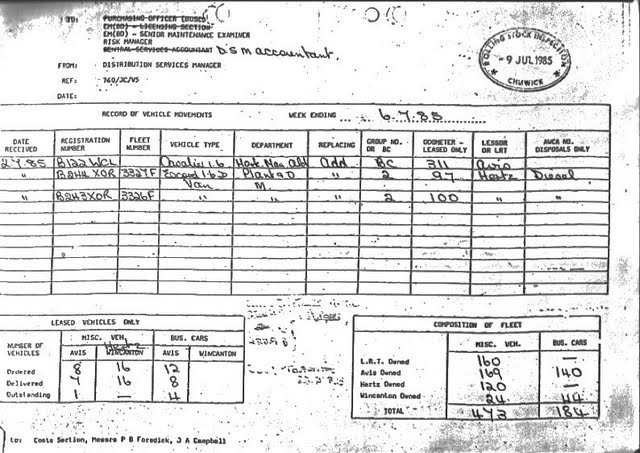 TO: PURCHASING OFFICER (BUSES)
EM(BD) - LICENSING SECTION
EM(BD) - SENIOR MAINTENANCE EXAMINER
RISK MANAGER
CENTRAL SERVICES ACCOUNTANT DSM accountant.
FROM: DISTRIBUTION SERVICES MANAGER
REF: 760/JC/VS
DATE:
ROLLING STOCK INSPECTOR
- 9 JUL 1985
CHISWICK
RECORD OF VEHICLE MOVEMENTS WEEK ENDING 6.7.85
DATE RECEIVED REGISTRATION NUMBER FLEET NUMBER VEHICLE TYPE DEPARTMENT REPLACING GROUP NO. OR BC ODOMETER - LEASED ONLY LESSOR OR LRT AWCA NO. DISPOSALS ONLY
2.7.85 B122WCL Cavalier 1.6 Add BC 311 Avis
" B244 XOR 3327F Escord 1.6 D Plant 90 " 2 97 Hertz Diesel
Van M.
" B243XOR 3326F " " " 2 100 " "
LEASED VEHICLES ONLY
NUMBER OF VEHICLES MISC. VEH. BUS. CARS
AVIS WINCANTON Hertz AVIS WINCANTON
Ordered 8 16 12
Delivered 7 16 8
Outstanding 1 — 4
COMPOSITION OF FLEET
MISC. VEH. BUS. CARS
L.R.T. Owned 160 —
Avis Owned 169 140
Hertz Owned 120 —
Wincanton Owned 24 44
TOTAL 473 184
to: Costs Section, Messrs P B Forsdick, J A Campbell